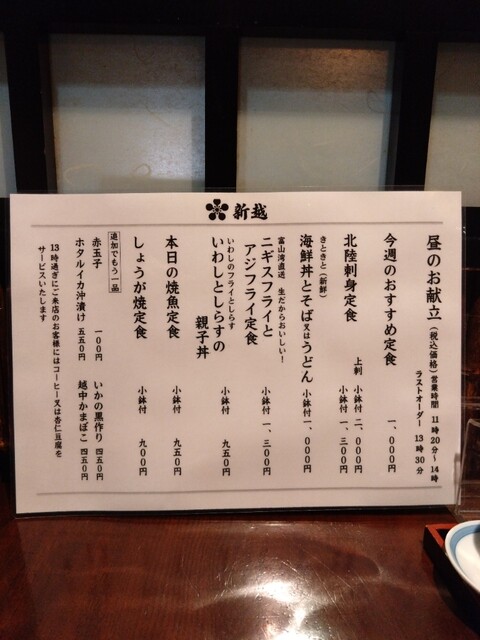 新越
昼のお献立（税込価格）営業時間 11時20分～14時
ラストオーダー 13時30分
今週のおすすめ定食 一、〇〇〇円
北陸刺身定食 上刺 小鉢付 二、〇〇〇円
小鉢付 一、三〇〇円
きときと（新鮮）
海鮮丼とそば又はうどん 小鉢付 一、〇〇〇円
富山湾直送 生だからおいしい！
ニギスフライと
アジフライ定食 小鉢付 一、三〇〇円
いわしのフライとしらす
いわしとしらすの
親子丼 小鉢付 九五〇円
本日の焼魚定食 小鉢付 九五〇円
しょうが焼定食 小鉢付 九〇〇円
追加でもう一品
赤玉子 一〇〇円 いかの黒作り 四五〇円
ホタルイカ沖漬け 五五〇円 越中かまぼこ 四五〇円
13時過ぎにご来店のお客様にはコーヒー又は杏仁豆腐を
サービスいたします